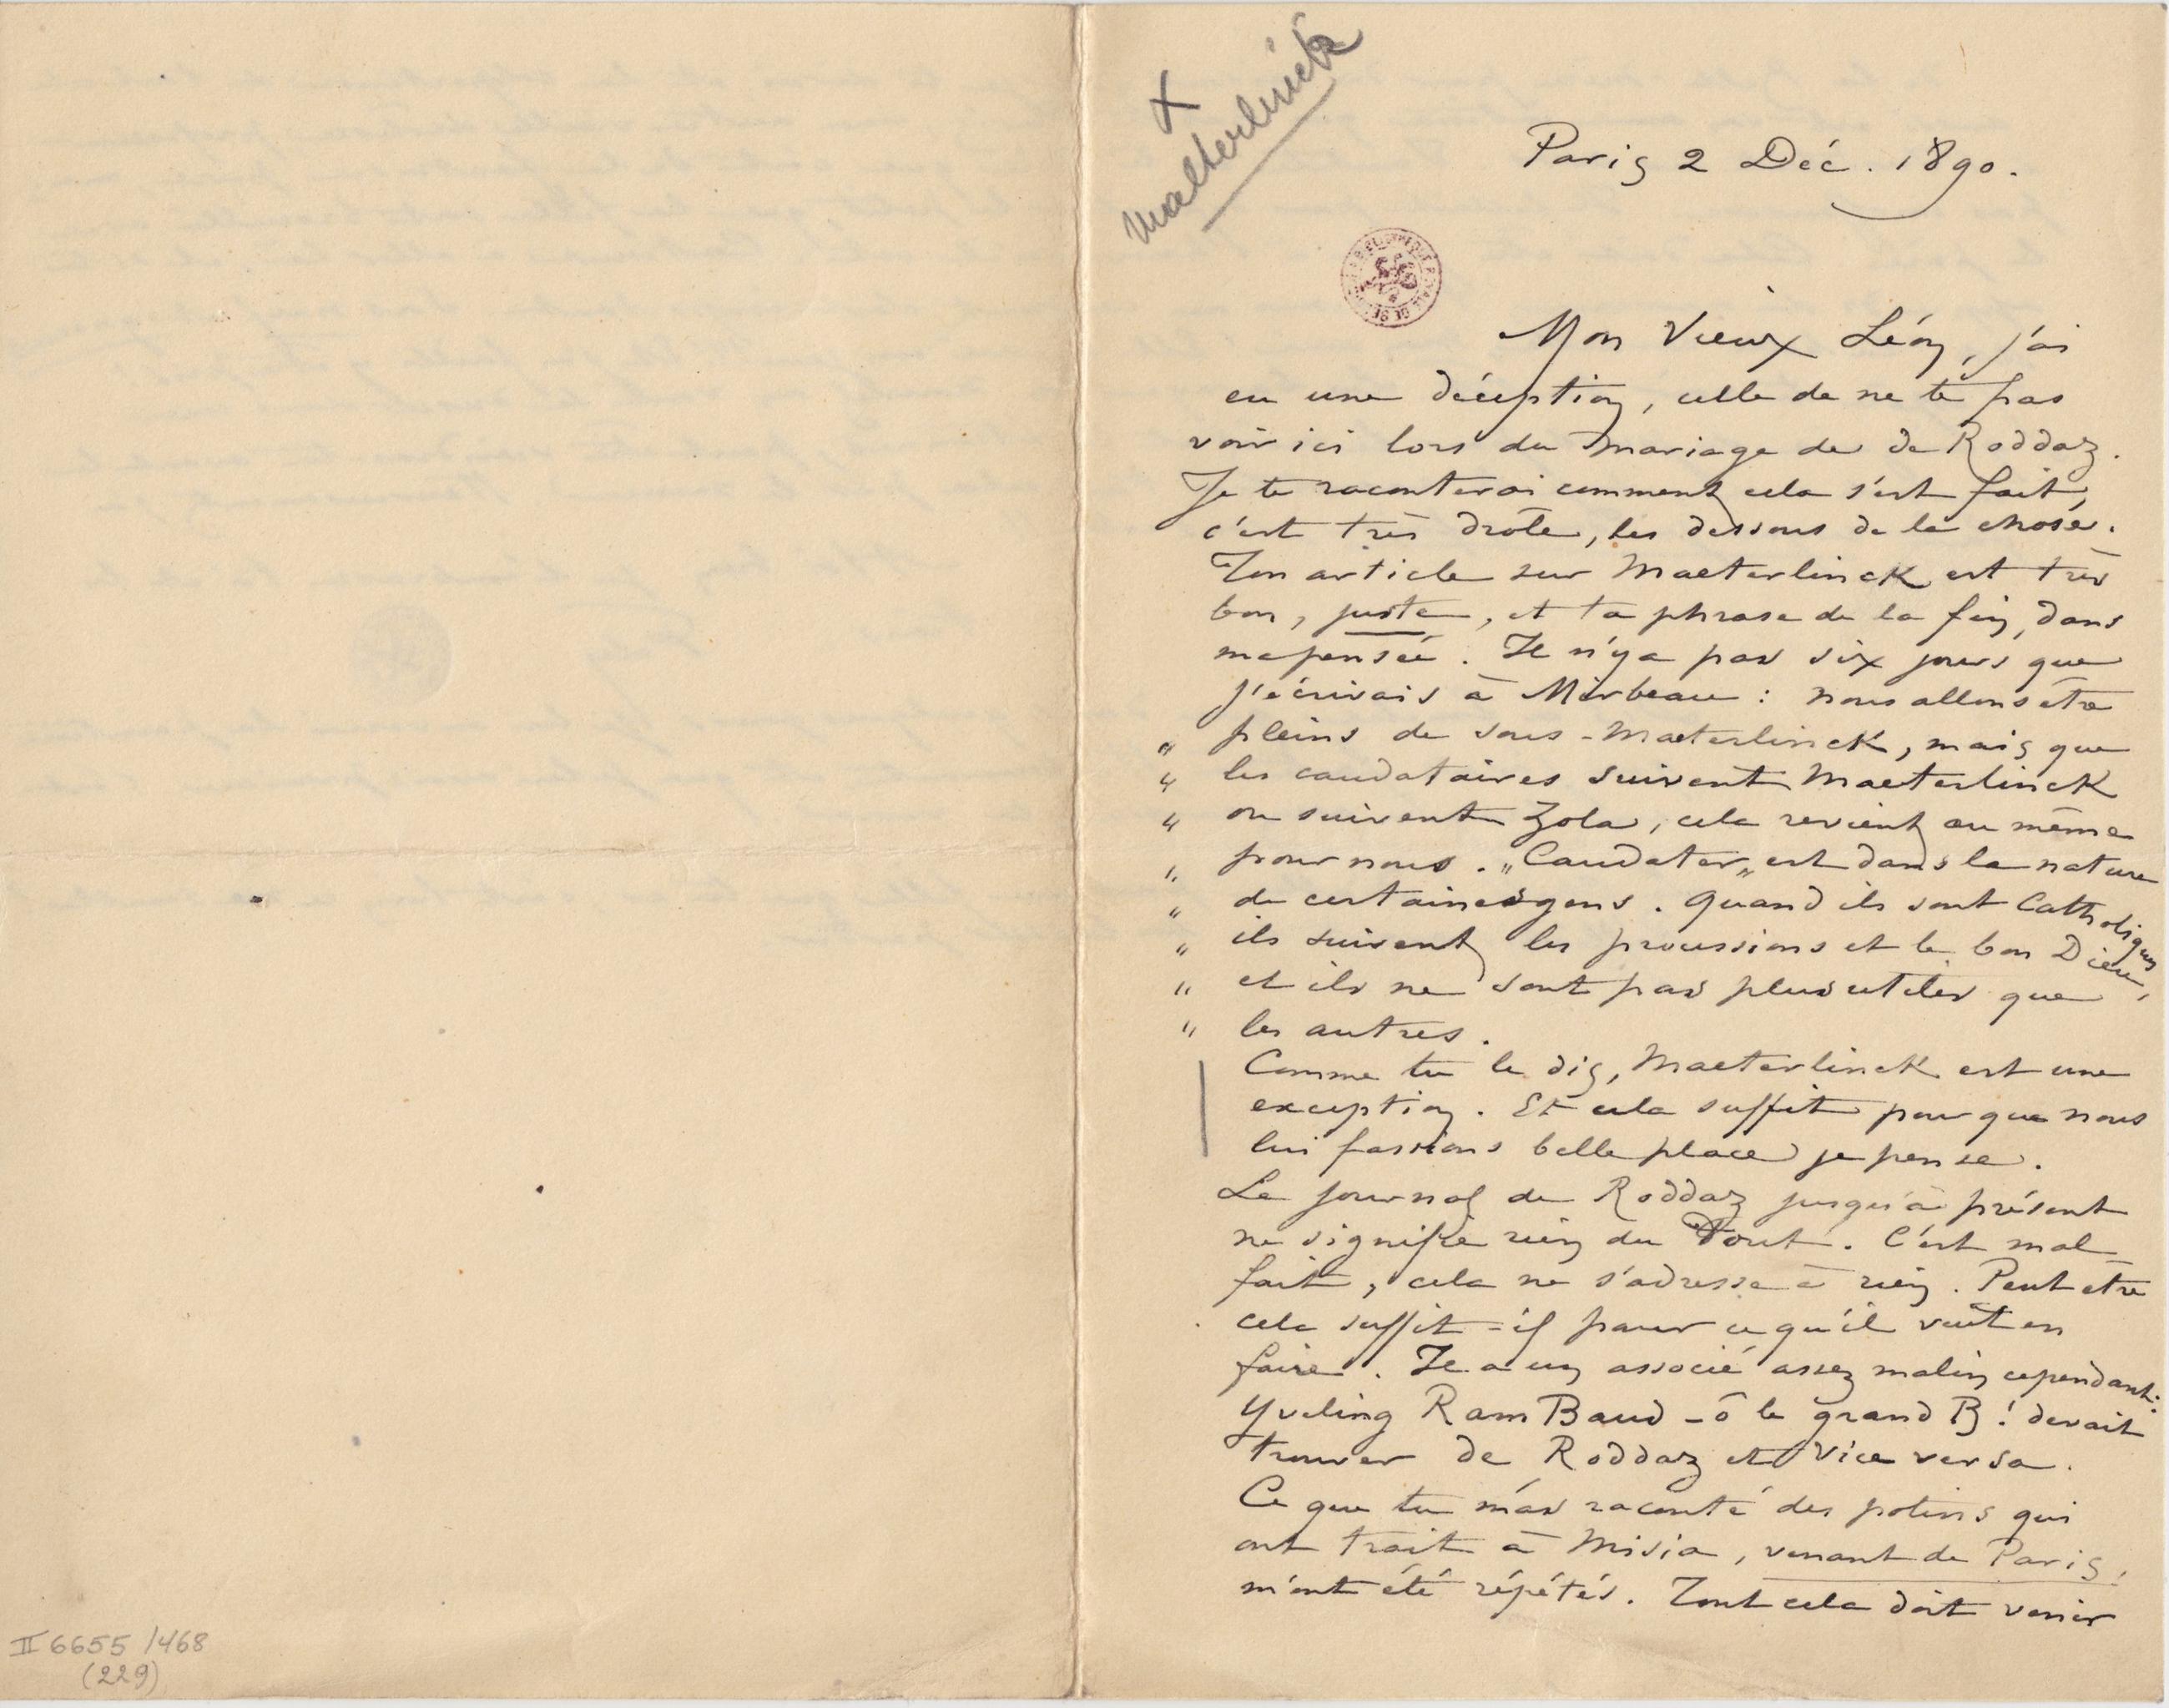 II 6655/468
(229)
X
Maeterlinck
Paris 2 Déc. 1890.
Mon Vieux Léon, j'ai
eu une déception, celle de ne te pas
voir ici lors du mariage de de Roddaz.
Je te raconterai comment cela s'est fait,
c'est très drôle, les dessous de la chose.
Ton article sur Maeterlinck est très
bon, juste, et ta phrase de la fin, dans
ma pensée. Il n'y a pas six jours que
j'écrivais à Mirbeau : nous allons être
" pleins de sous-Maeterlinck, mais que
" les caudataires suivent Maeterlinck
" ou suivent Zola, cela revient au même
" pour nous. "Caudater" est dans la nature
" de certaines gens. Quand ils sont Catholiques
" ils suivent les processions et le bon Dieu,
" et ils ne sont pas plus utiles que
" les autres.
Comme tu le dis, Maeterlinck est une
exception. Et cela suffit pour que nous
lui fassions belle place je pense.
Le journal de Roddaz jusqu'à présent
ne signifie rien du Tout. C'est mal
fait, cela ne s'adresse à rien. Peut être
cela suffit-il pour ce qu'il veut en
faire. Il a un associé assez malin cependant:
Yveling RamBaud - ô le grand B! devait
trouver de Roddaz et vice versa.
Ce que tu m'as raconté des potins qui
ont trait à Misia, venant de Paris,
m'ont été répétés. Tout cela doit venir